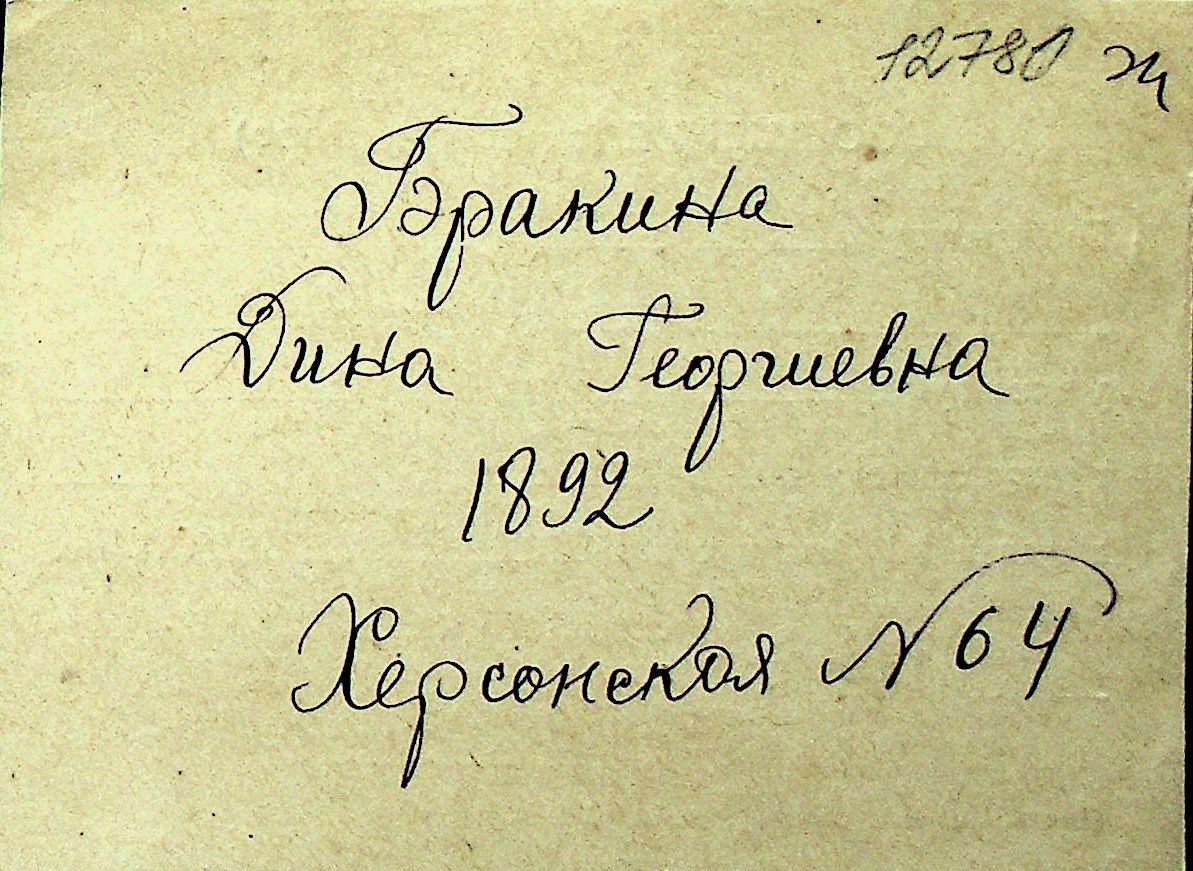 12780 ж
Бракина
Дина Георгиевна
1892
Херсонская № 64